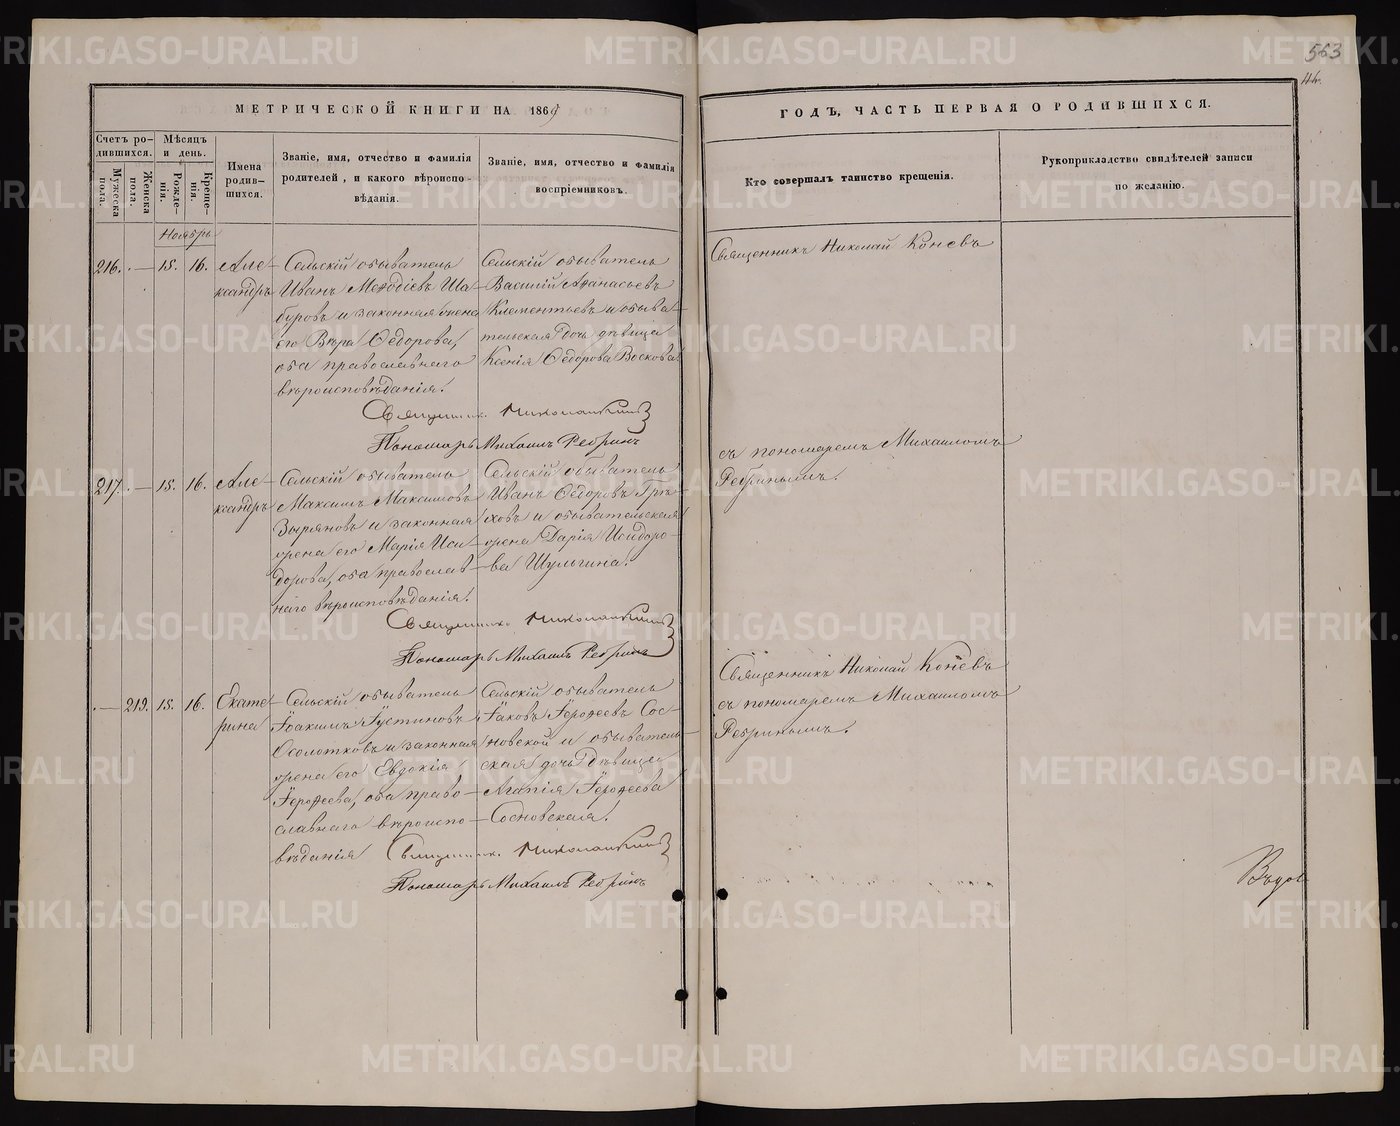 563
44.
МЕТРИЧЕСКОЙ КНИГИ НА 1869
ГОДЪ, ЧАСТЬ ПЕРВАЯ О РОДИВШИХСЯ.
Счетъ родившихся.
Мужеска пола.
Женска пола.
Мѣсяцъ и день.
Рожденія.
Крещенія.
Имена родившихся.
Званіе, имя, отчество и фамилія
родителей, и какого вѣроиспо-
вѣданія.
Званіе, имя, отчество и фамилія
воспріемниковъ.
Кто совершалъ таинство крещенія.
Рукоприкладство свидѣтелей записи
по желанію.
Ноябрь
216. — 15. 16. Але-
ксандръ
Сельскій обыватель
Иванъ Меѳодіевъ Ша-
буровъ и законная жена
его Вѣра Ѳедорова,
оба православнаго
вѣроисповѣданія.
Сельскій обыватель
Василій Аѳанасьевъ
Клементьевъ и обыва-
тельская дочь дѣвица
Ксенія Ѳедорова Воскова.
Священникъ Николай Коневъ
съ пономаремъ Михаиломъ
Ребринымъ.
Священник Николай Конев
Пономарь Михаилъ Ребринъ
217. — 15. 16. Але-
ксандръ
Сельскій обыватель
Максимъ Максимовъ
Зыряновъ и законная
жена его Марія Иси-
дорова, оба православ-
наго вѣроисповѣданія.
Сельскій обыватель
Иванъ Ѳедоровъ Грѣ-
ховъ и обывательская
жена Дарія Исидоро-
ва Шульгина.
Священник Николай Конев
Пономарь Михаилъ Ребринъ
— 219. 15. 16. Екате-
рина
Сельскій обыватель
Іоакимъ Іустиновъ
Осолотковъ и законная
жена его Евдокія
Іероѳеева, оба право-
славнаго вѣроиспо-
вѣданія
Сельскій обыватель
Іаковъ Іероѳеевъ Сос-
новской и обыватель-
ская дочь дѣвица
Агапія Іероѳеева
Сосновская.
Священникъ Николай Коневъ
съ пономаремъ Михаиломъ
Ребринымъ.
Священник Николай Конев
Пономарь Михаилъ Ребринъ
METRIKI.GASO-URAL.RU